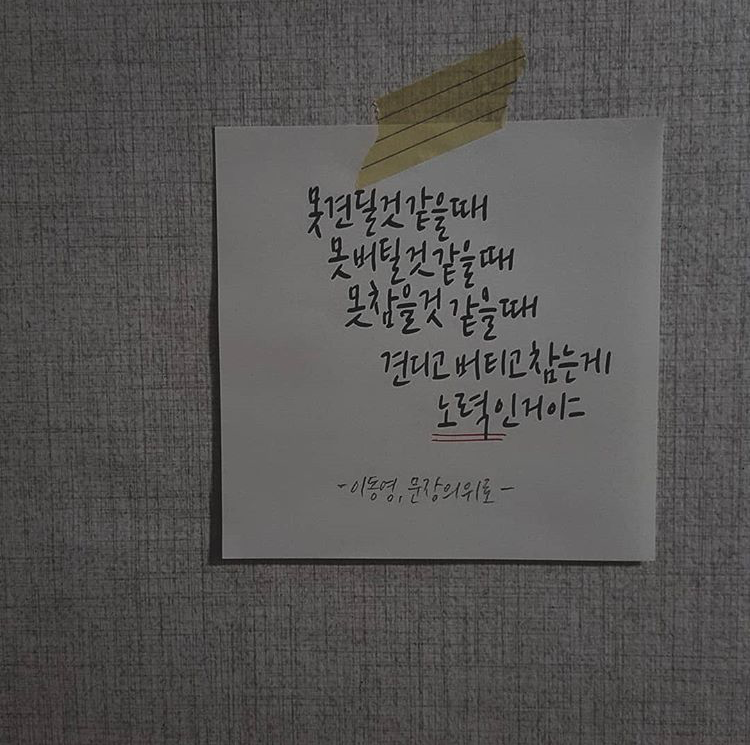 못견딜것같을때
못버틸것같을때
못참을것같을때
견디고버티고참는게
노력인거야
-이동영, 문장의위로-